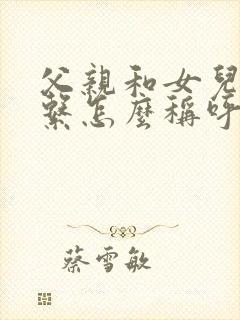 父親和女兒
繫怎麼稱呼
蔡雪敏